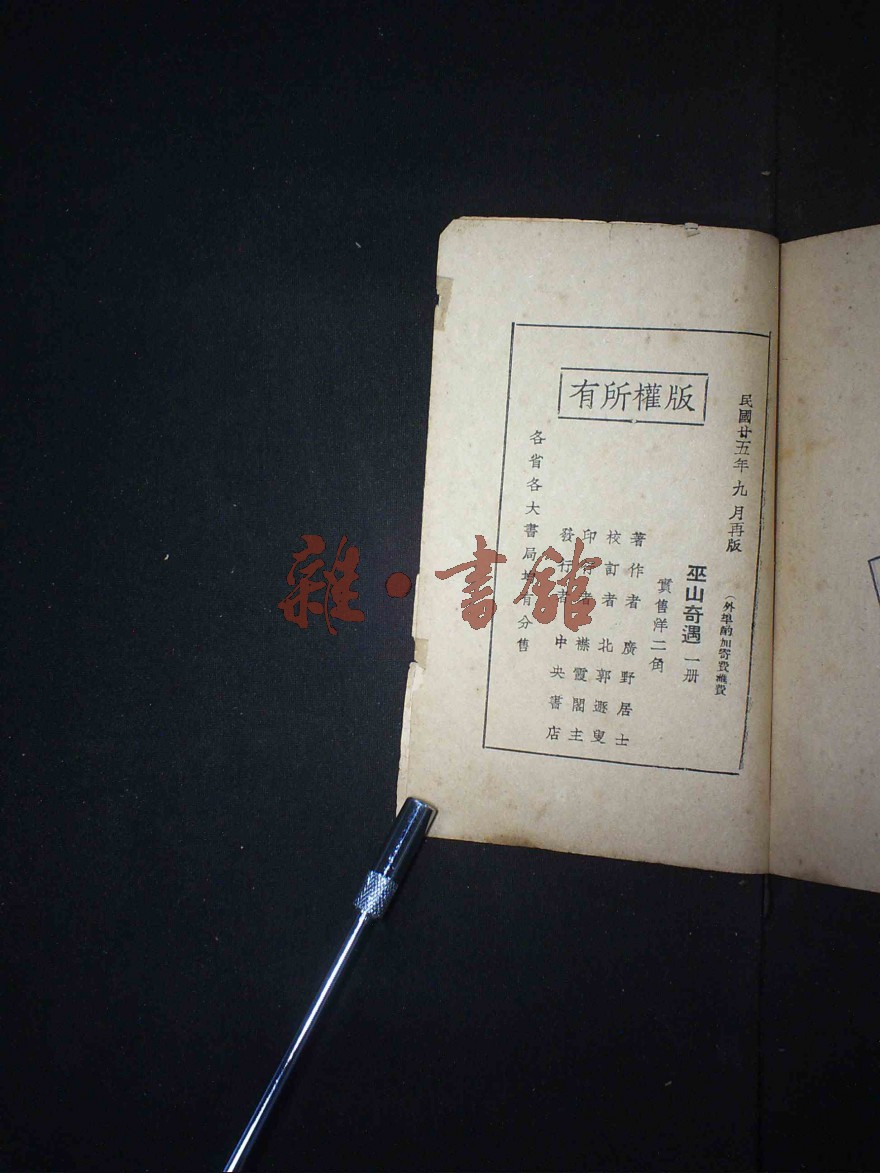 民國廿五年九月再版
(外埠酌加寄費滙費
巫山奇遇一册
實售洋二角
著作者 廣野居士
校訂者 北郭遯叟
印行者 襟霞閣主
發行者 中央書店
版權所有
各省各大書局均有分售
雜·書館